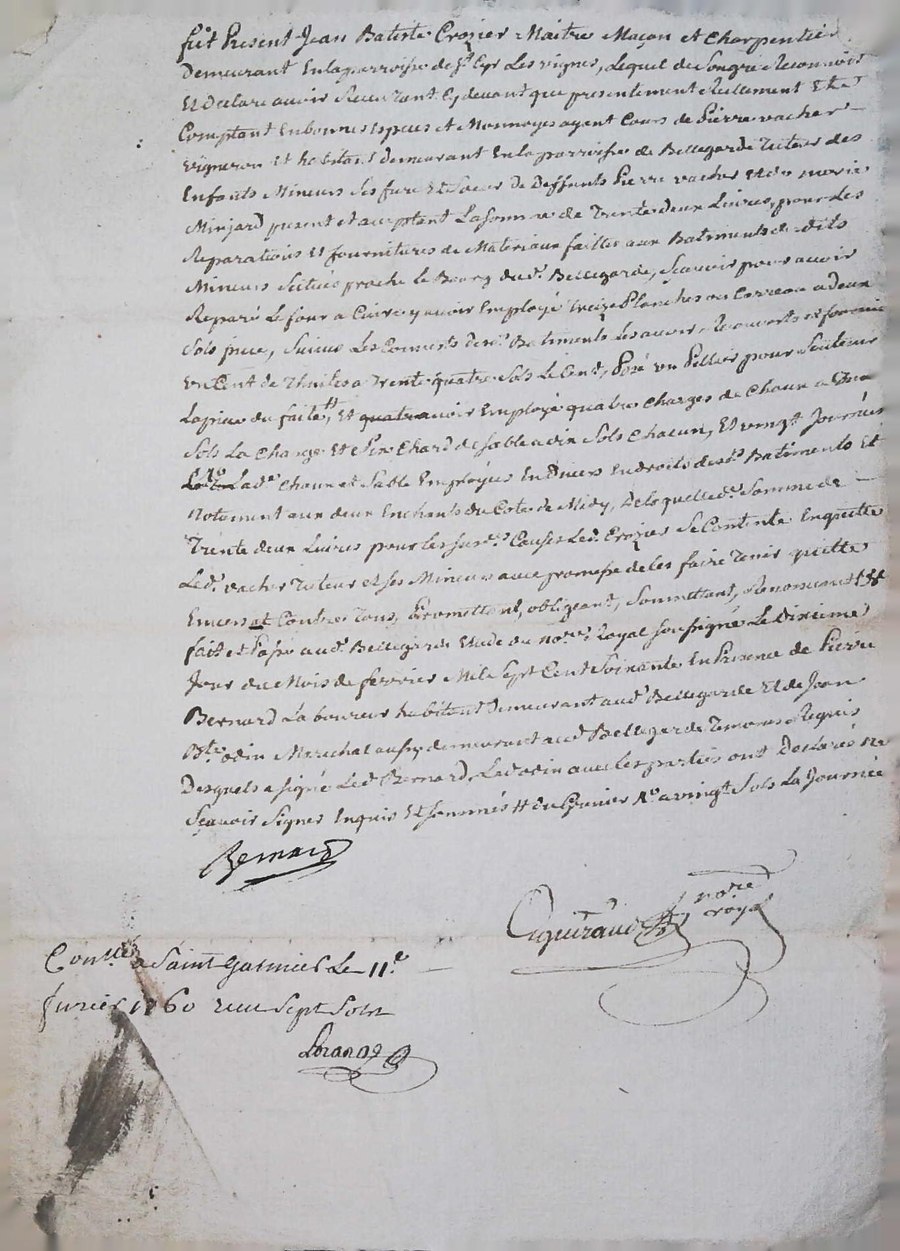 fut Present Jean Batiste Crozier Maitre Maçon et Charpentier
demeurant Enlaparroisse de St Cyr Les vignes, Lequel de Songré Reconnoit
Et Declare avoir Receu tant Cy devant que presentement Reellement Et
Comptant Enbonnes Especes et Monnoyes ayent Cours de Pierre vacher
vigneron et habitant demeurant Enlaparroisse de Bellegarde Tuteur des
Enfants Mineurs Ses frere Et Soeur de Deffunts Pierre vacher et marie
Minjard present et acceptant La somme de Trente deux Livres, pour Les
Reparations Et fournitures de Materiaux faittes aux Batiments desdits
Mineurs Scitués proche le Bourg dud. Bellegarde, Sçavoir pour avoir
Reparé Le four a Cuire y avoir Employé Treize Planches ou Carreau a deux
Sols piece, Suivre Les Couverts Batiments Les avoir Recouverts et fourni
un Cent de Thuiles a Trente quatre Sols le Cent, Posé un Pillier pour Soutenir
Lapiece du faite, Et avoir Employé quatre Charges de Chaux a
Sols La Charge Et Six Chard de Sable a dix Sols Chacun, Et vingt Journées
Lade Chaux et Sable Employées En divers Endroits desds Batiments Et
Notament aux deux Enchants du Coté de Midy, De laquelle de Somme de
Trente deux Livres pour les susds Causes Led. Crozier Se Contente Enquitte
Led. vacher Tuteur et ses Mineurs avec promesse de les faire Tenir quitte
Envers et Contre Tous, Promettant, obligeant, Soumettant, Renonceant
fait et Passé aud. Bellegarde Etude du nore Royal Soussigné Le Dixieme
Jour du Mois de fevrier Mil Sept Cent Soixante En Presence de Pierre
Bernard Laboureur habitant Demeurant aud. Bellegarde Et de Jean
Bte odin Marechal aussy demeurant aud. Bellegarde Temoins Requis
Desquels a signé Led. Bernard, Led. odin avec les parties ont Declaré ne
Sçavoir Signer Enquis Et Sommés # du Crozier a vingt Sols La Journée
Bernard
nore
royal
Conllé a Saint Galmier Le 11e
fevrier 1760 receu Sept Sols